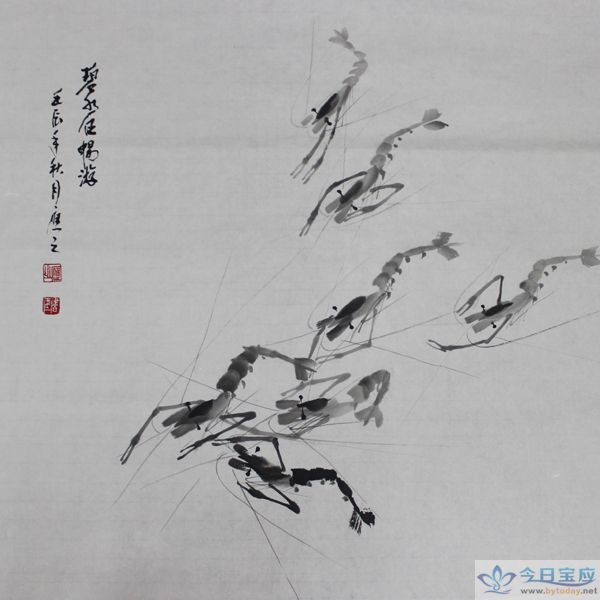 碧水任畅游
壬辰年秋月应之
今日宝应
www.bytoday.net